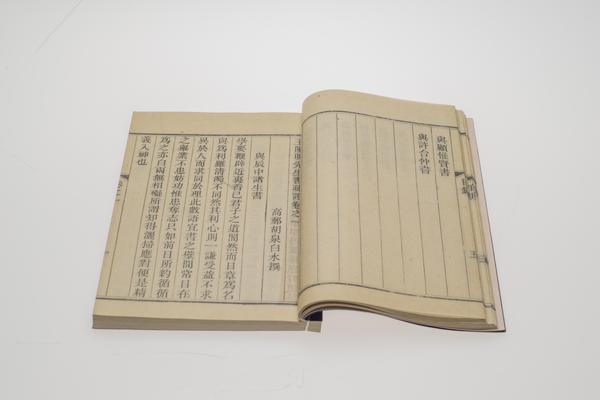 與顧惟賢書
與許台仲書
王陽明先生書疏證卷之一
高郵胡泉白水撰
與辰中諸生書
學要鞭辟近裏着己君子之道闇然而日章爲名
與爲利雖清濁不同然其利心則一謙受益不求
異於人而求同於理此數語宜書之壁間常目在
之舉業不患妨功惟患奪志只如前日所約循循
爲之亦自兩無相礙所謂知得灑掃應對便是精
義入神也